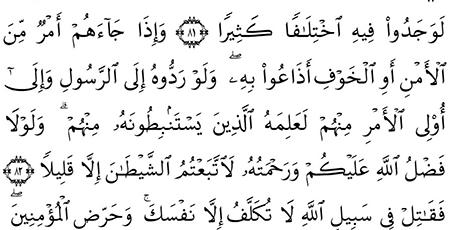 لَوَجَدُوا۟ فِيهِ ٱخْتِلَٰفًا كَثِيرًا ﴿٨١﴾ وَإِذَا جَآءَهُمْ أَمْرٌ مِّنَ
ٱلْأَمْنِ أَوِ ٱلْخَوْفِ أَذَاعُوا۟ بِهِۦ ۖ وَلَوْ رَدُّوهُ إِلَى ٱلرَّسُولِ وَإِلَىٰٓ
أُو۟لِى ٱلْأَمْرِ مِنْهُمْ لَعَلِمَهُ ٱلَّذِينَ يَسْتَنۢبِطُونَهُۥ مِنْهُمْ ۗ وَلَوْلَا
فَضْلُ ٱللَّهِ عَلَيْكُمْ وَرَحْمَتُهُۥ لَٱتَّبَعْتُمُ ٱلشَّيْطَٰنَ إِلَّا قَلِيلًا ﴿٨٢﴾
فَقَٰتِلْ فِى سَبِيلِ ٱللَّهِ لَا تُكَلَّفُ إِلَّا نَفْسَكَ ۚ وَحَرِّضِ ٱلْمُؤْمِنِينَ ۖ